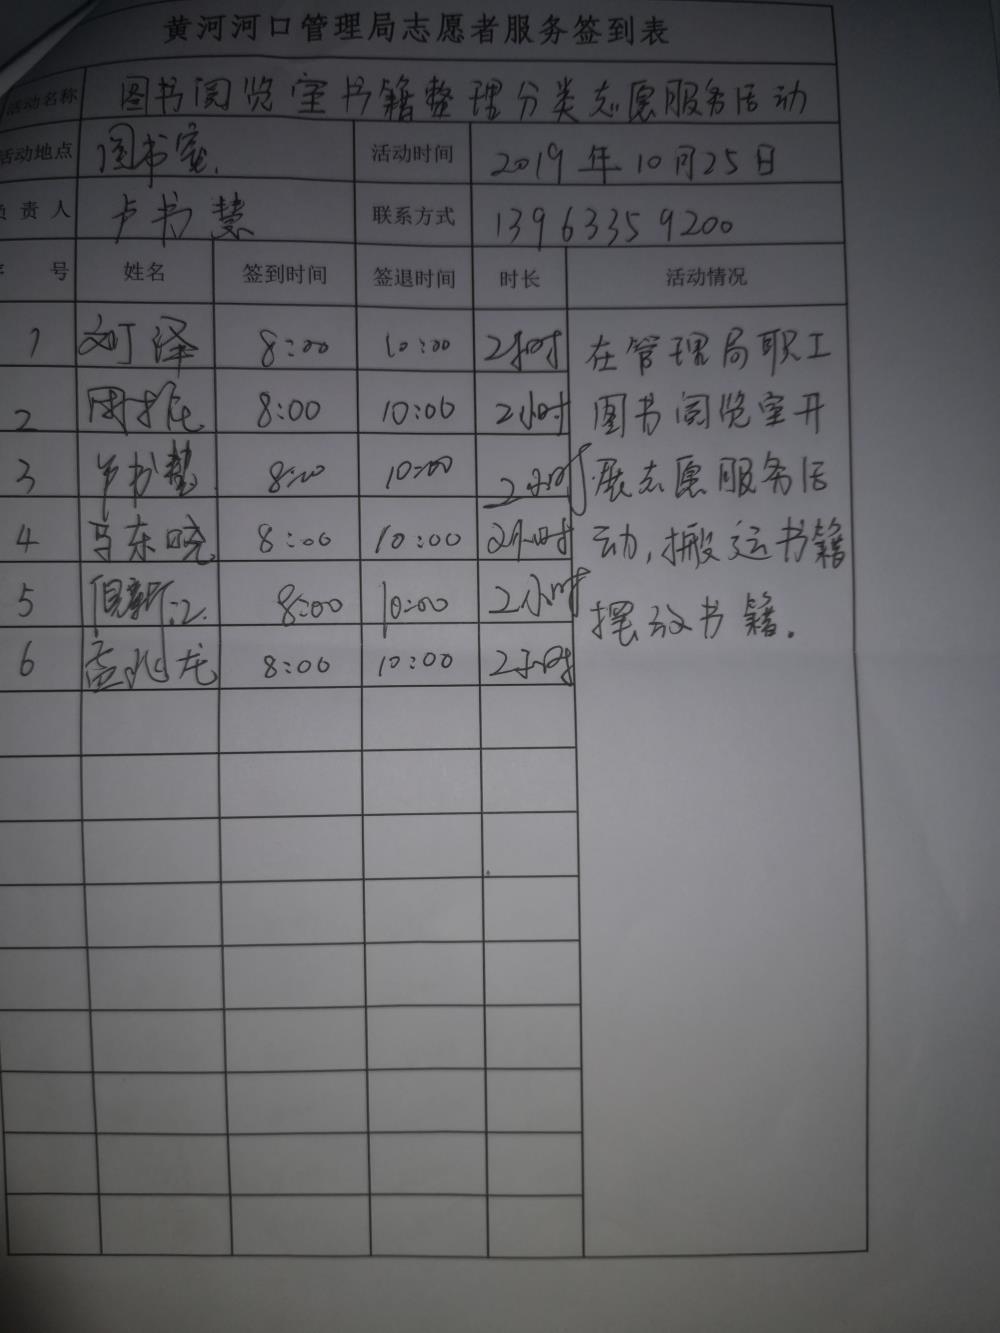 黄河河口管理局志愿者服务签到表
活动名称 图书阅览室书籍整理分类志愿服务活动
活动地点 图书室. 活动时间 2019年10月25日
负责人 卢书慧 联系方式 13963359200
序号 姓名 签到时间 签退时间 时长 活动情况
1 刘泽 8:00 10:00 2小时 在管理局职工
2 8:00 10:00 2小时 图书阅览室开
3 卢书慧 8:00 10:00 2小时 展志愿服务活
4 马东晓 8:00 10:00 2小时 动,搬运书籍
5 倪新江 8:00 10:00 2小时 摆放书籍.
6 孟兆龙 8:00 10:00 2小时